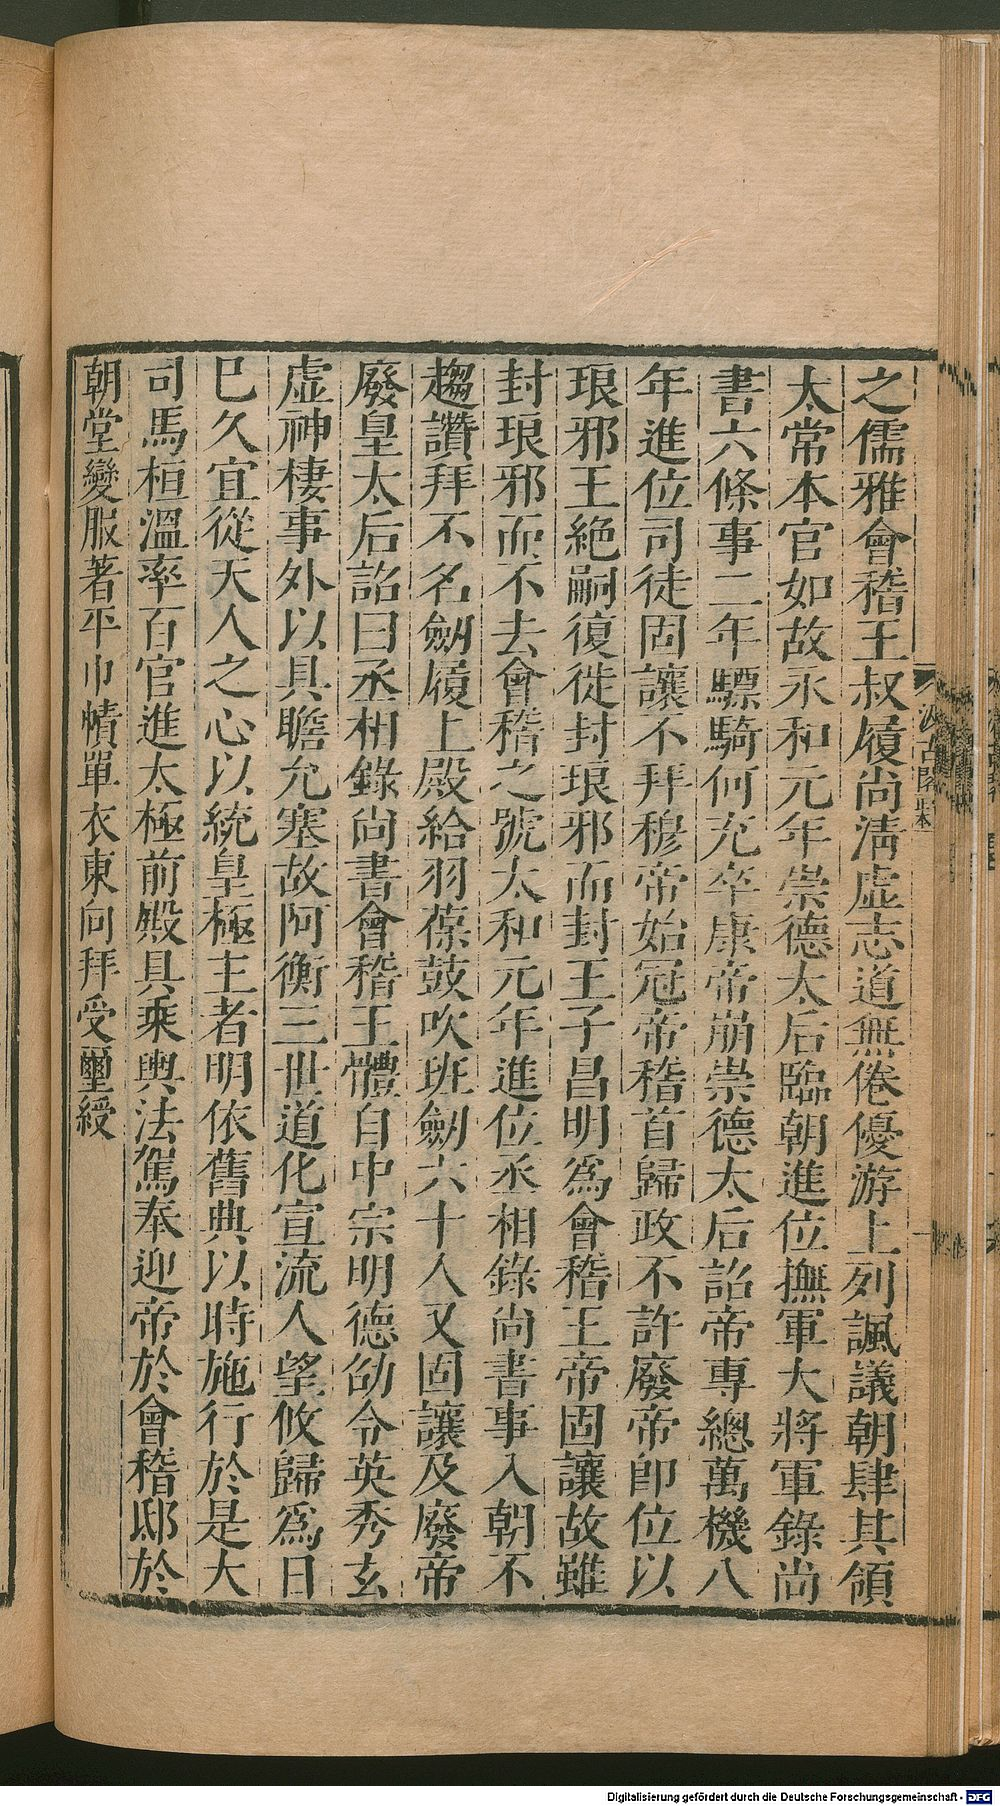 之儒雅會稽王叔履尚淸虛志道無倦優游上列諷議朝肆其領
太常本官如故永和元年崇德太后臨朝進位撫軍大將軍錄尚
書六條事二年驃騎何充卒康帝崩崇德太后詔帝專總萬機八
年進位司徒固讓不拜穆帝始冠帝稽首歸政不許廢帝卽位以
琅邪王絶嗣復徙封琅邪而封王子昌明爲會稽王帝固讓故雖
封琅邪而不去會稽之號太和元年進位丞相錄尚書事入朝不
趨讚拜不名劒履上殿給羽葆鼓吹班劒六十人又固讓及廢帝
廢皇太后詔曰丞相錄尚書會稽王體自中宗明德劭令英秀玄
虛神棲事外以具瞻允塞故阿衡三世道化宣流人望攸歸爲日
已久宜從天人之心以統皇極主者明依舊典以時施行於是大
司馬桓溫率百官進太極前殿具乘輿法駕奉迎帝於會稽邸於
朝堂變服著平巾幘單衣東向拜受璽綬
汲古閣
Digitalisierung gefördert durch die Deutsche Forschungsgemeinschaft - DFG